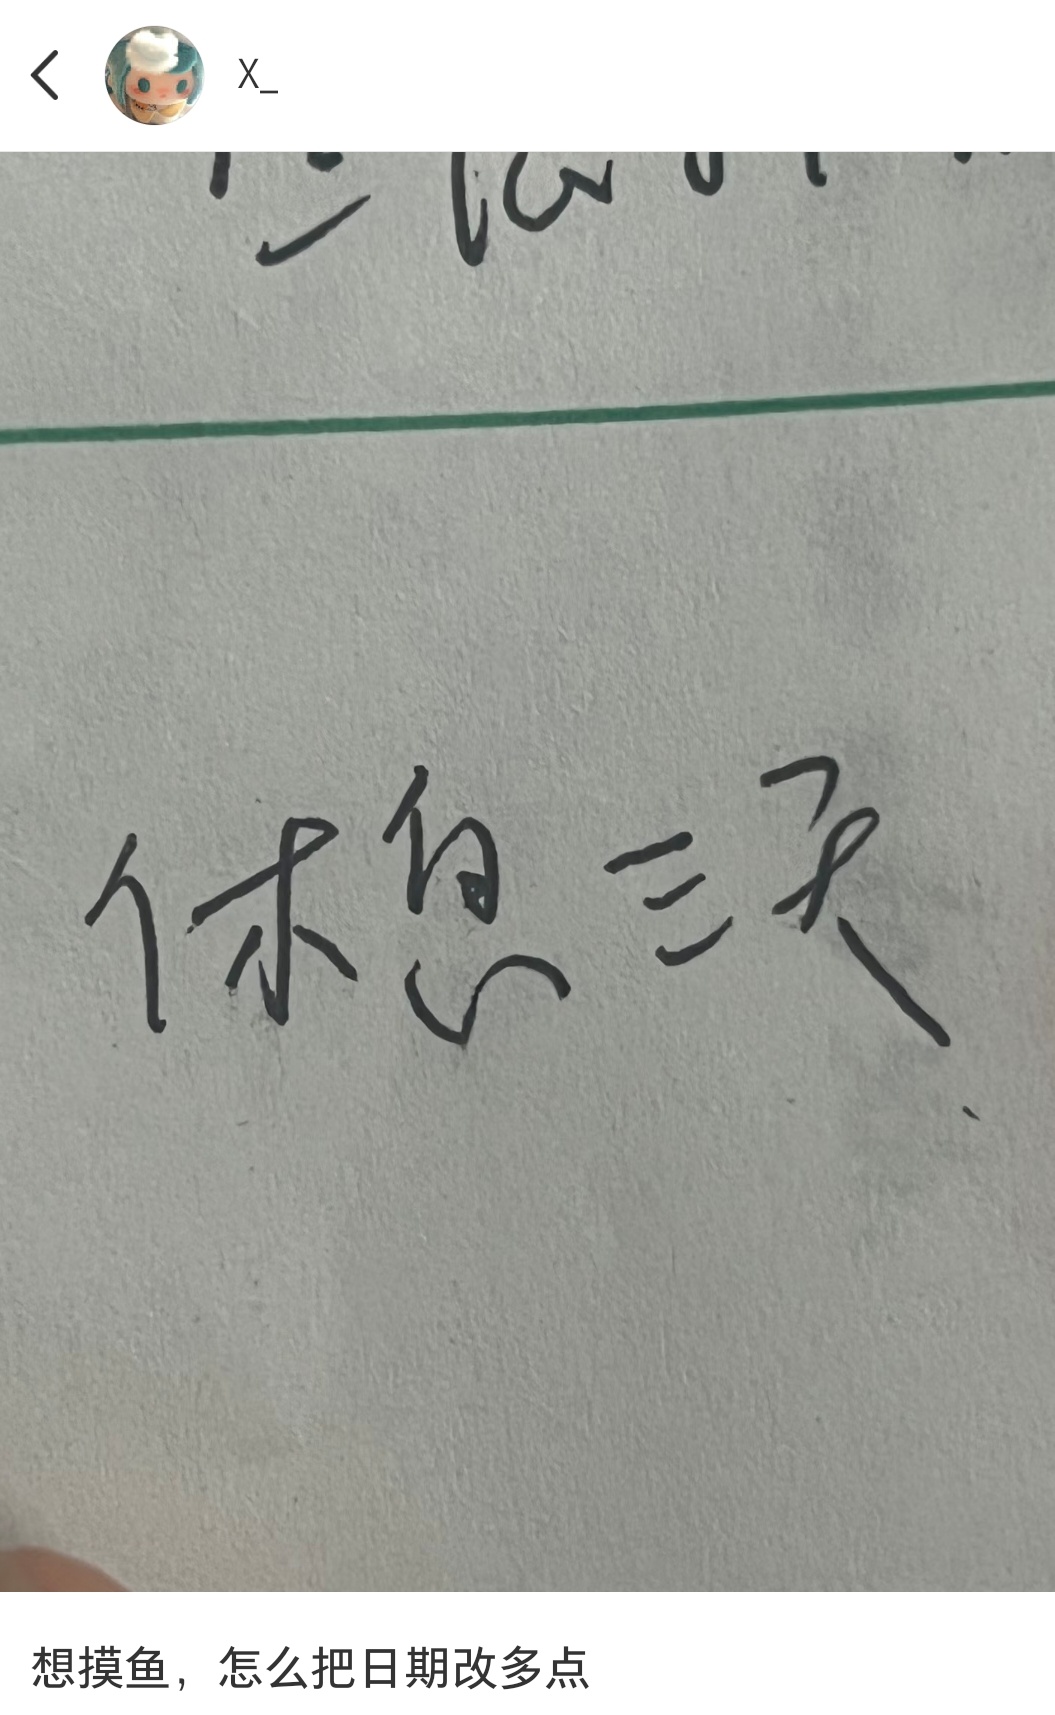 X_
休息三天
想摸鱼，怎么把日期改多点